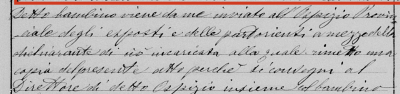 detto bambino viene da me inviato all'Ospizio Provin
ciale degli esposti e delle partorienti a mezzo della
dichiarante di ciò incaricata alla quale rimetto una
copia del presente atto perchè si consegni al
Direttore di detto Ospizio insieme col bambino